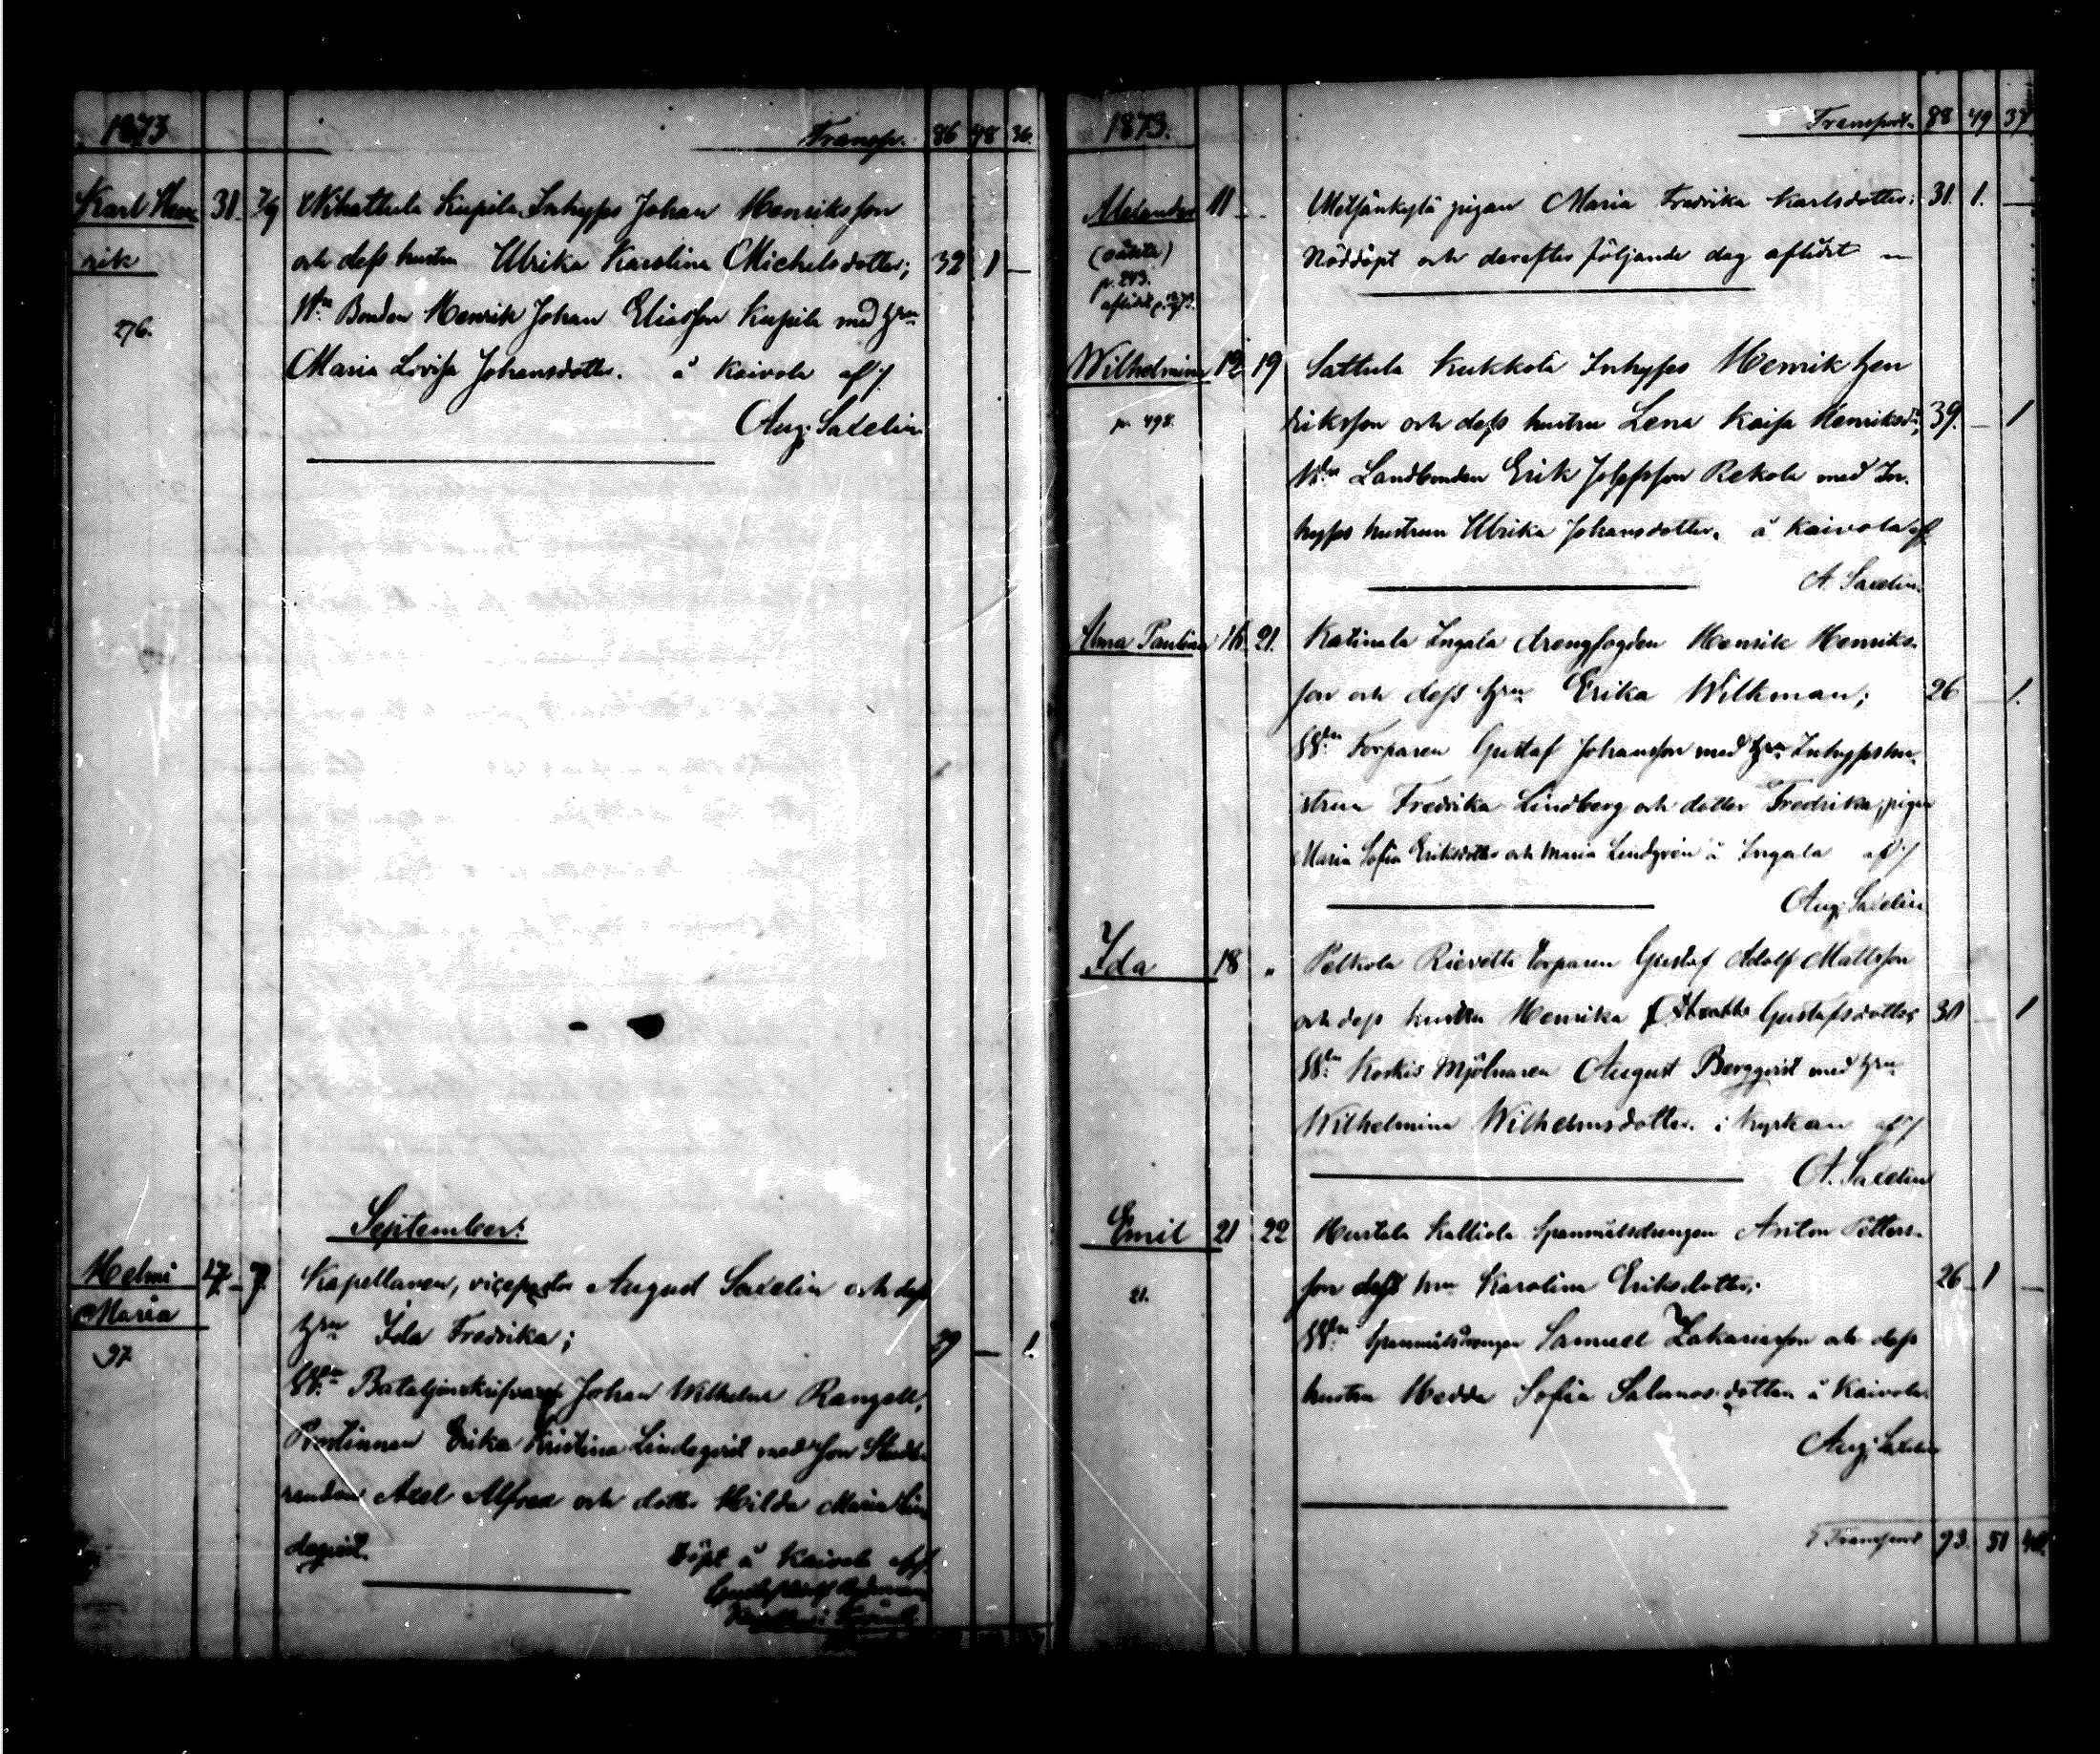 1873 Transp. 86 48 36.
Karl Hen- 31. 7/9 Wihattula Kupila Inhyses Johan Henriksson
rik och dess hustru Ulrika Karolina Michelsdotter; 32 1 —
276. Wtn: Bonden Henrik Johan Eliasson Kupila med hru
Maria Lovisa Johansdotter. å Kaivola af
Aug. Saxelin
September:
Helmi 7. Kapellanen, vicepastor August Saxelin och dess
Maria hru Ida Fredrika; 29 — 1.
97 Wtn: Johan Wilhelm Rangell,
Prostinnan Erika Kristina Lindeqvist med son Stude-
randen Axel Alfred och dotter Hilda Maria Lin-
deqvist. Döpt å Kaivola af
1873. Transport. 88 49 37
Alexander 11 pigan Maria Fredrika Karlsdotter; 31. 1. —
(oäkta) Nöddöpt och derefter följande dag aflidit
p. 243.
Wilhelmina 12 19 Sattula Kukkola Inhyses Henrik Hen
p. 498. driksson och dess hustru Lena Kaisa Henriksdr, 39. — 1
Wtn Landbonden Erik Josefsson Rekola med In-
hyses hustrun Ulrika Johansdotter. å Kaivola af
A Saxelin.
Alma Paulina 16 21. Katinala Ingala Arengfogden Henrik Henriks-
son och dess hru Erika Wilkman; 26 — 1.
Wtn: Torparen Gustaf Johansson med hru Inhyseshu-
strun Fredrika Lindberg och dotter Fredrika, pigan
Maria Sofia Eriksdotter och Maria Lindgren å Ingala af
Aug. Saxelin
Ida 18 " Pelkola torparen Gustaf Adolf Mattsson
och dess hustru Henrika Gustafsdotter 30 — 1
Wtn: Mjölnaren August Bergqvist med hru
Wilhelmina Wilhelmsdotter. i Kyrkan af
A. Saxelin
Emil 21 22 Kalliola Spanmålsdrengen Anton Petters-
21. son dess hru Karolina Eriksdotter; 26 1 —
Wtn: Spanmålsdrengen Samuel Zakariasson och dess
hustru Hedda Sofia Salomosdotter å Kaivola.
Aug. Saxelin
Transport 93. 51 40.